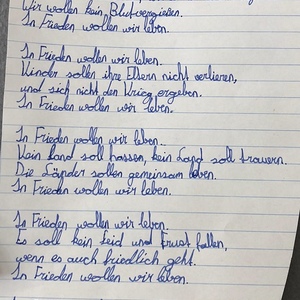 Wir wollen kein Blutvergießen.
In Frieden wollen wir leben.
In Frieden wollen wir leben.
Kinder sollen ihre Eltern nicht verlieren,
und sich nicht den Krieg ergeben.
In Frieden wollen wir leben.
In Frieden wollen wir leben.
Kein Land soll hassen, kein Land soll trauern.
Die Länder sollen gemeinsam leben.
In Frieden wollen wir leben.
In Frieden wollen wir leben.
Es soll kein Leid und Frust fallen,
wenn es auch friedlich geht.
In Frieden wollen wir leben.